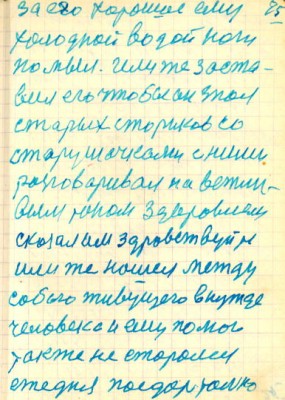 за его хорошее ему 85
холодной водой ноги
помыл. Или же заста-
вил его чтобы он знал
старых стариков со
старушочками с ними
разговаривал на вежли-
вым тоном здоровьем
сказал им здравствуйте
или же нашел между
собою живущего в нужде
человека и ему помог
также не старался
ежедня подар только